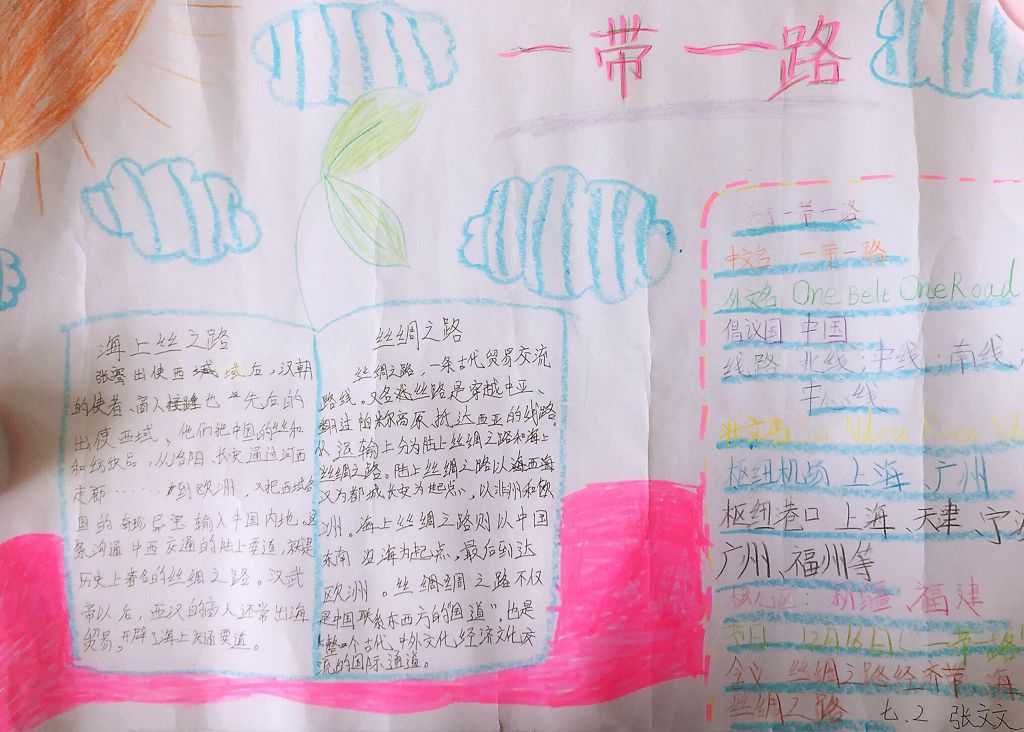 一带一路
海上丝之路
张骞出使西域后,汉朝
的使者、商人接踵也先后的
出使西域,他们把中国的丝和
和纺织品,从洛阳、长安通过河西
走廊……到欧洲,又把西域各
国的奇珍异宝输入中国内地。这
条沟通中西交通的陆上要道,就是
历史上著名的丝绸之路。汉武
帝以后,西汉的商人还常出海
贸易,开辟了海上交通要道。
丝绸之路
丝绸之路,一条古代贸易交流
路线。又名丝路是穿越中亚、
翻过帕米尔高原、抵达西亚的线路。
从运输上分为陆上丝绸之路和海上
丝绸之路。陆上丝绸之路以
汉为都城长安为起点,以非洲和欧
洲。海上丝绸之路则以中国
东南沿海为起点,最后到达
欧洲。丝绸绸之路不仅
是中国联系东西方的“国道”,也是
整个古代,中外文化,经济文化交
流的国际通道。
关于一带一路
中文名 一带一路
外文名 One Belt One Road
倡议国 中国
线路 北线;中线;南线;
中心线
枢纽机场 上海、广州
枢纽港口 上海、天津、宁波
广州、福州等
核心区:新疆、福建
12月16日 一带一路
会议 丝绸之路经济带、海
丝绸之路
七.2 张文文